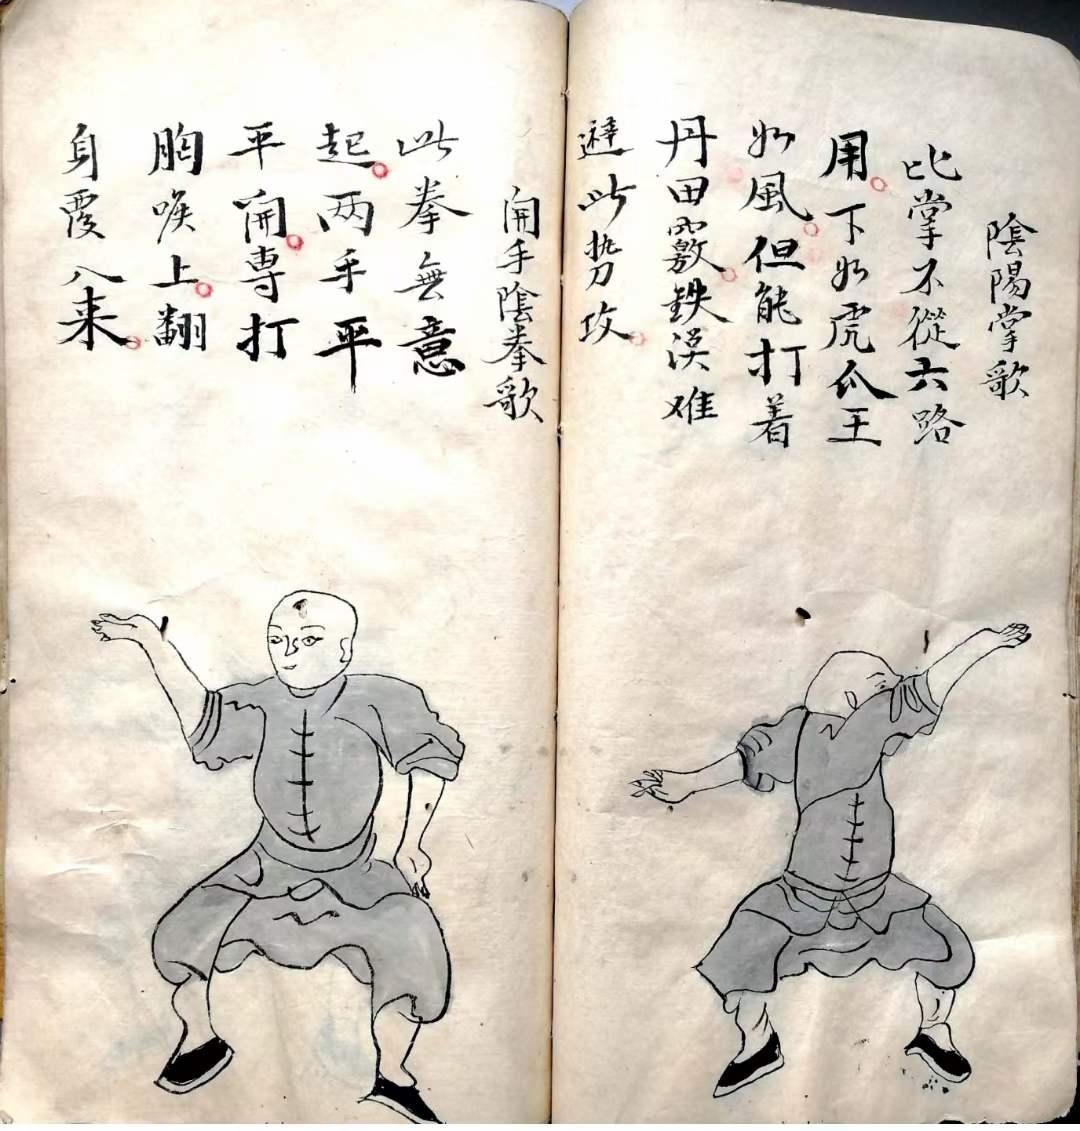 陰陽掌歌
比掌不從六路
用。下如虎爪王
如風。但能打着
丹田竅。鉄漢难
避此势攻。
開手陰拳歌
此拳無意
起。两手平
平開。専打
胸喉上。翻
身覆八来。